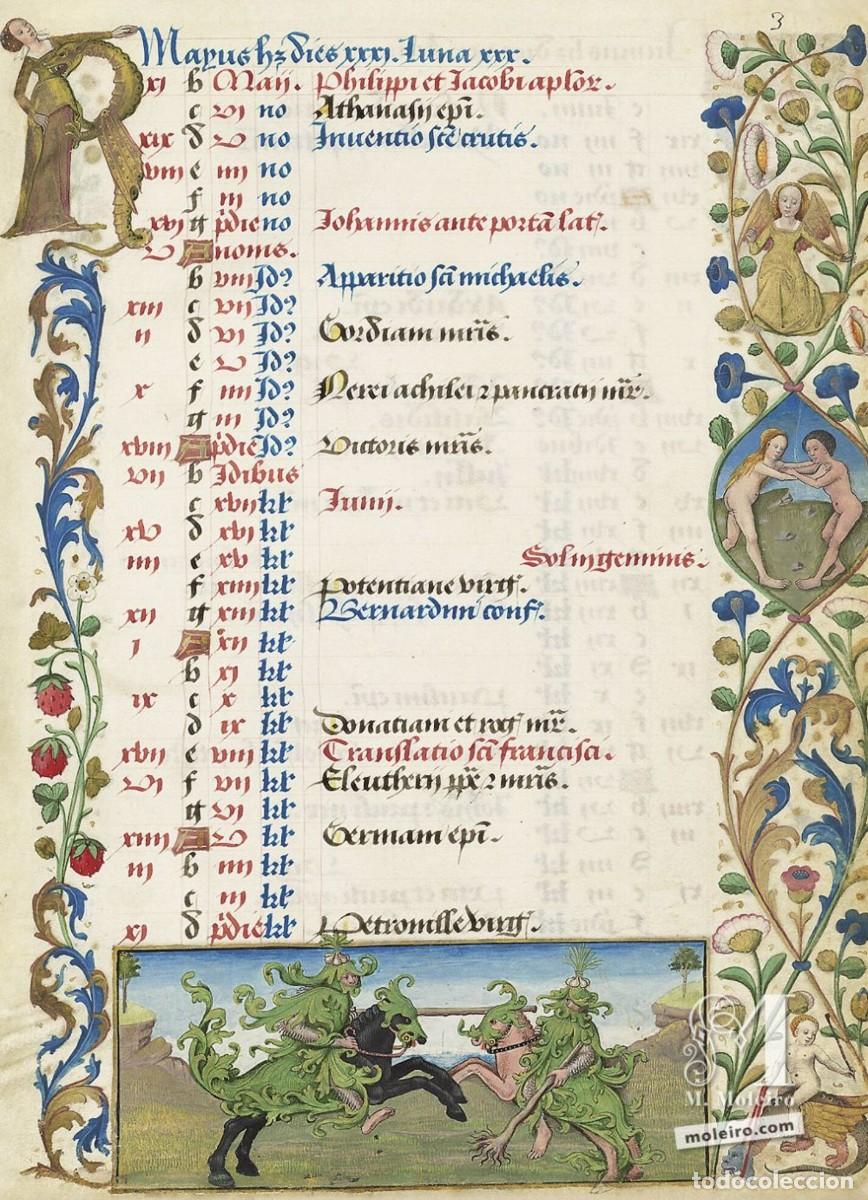 3
Mayus hꝫ dies xxxi. luna xxx.
xi b Maij. Philippi et Jacobi aplor.
c vi no Athanasij epi.
xix d v no Inventio sce crucis.
viii e iiii no
f iii no
xvi g pdie no Johannis ante portā lat.
v A nonis.
b viii Id? Apparitio sci michaelis.
xiii c vii Id?
ii d vi Id? Gordiani mris.
e v Id?
x f iiii Id? Nerei achilei 2 pancracij mr.
g iii Id?
xviii A pdie Id? Victoris mris.
vii b Idibus
c xvii kl Junij.
xv d xvi kl
iiii e xv kl Sol in geminis.
f xiiii kl Potentiane virg.
xii g xiii kl Bernardini conf.
i A xii kl
b xi kl
ix c x kl
d ix kl Donatiani et rog mr.
xvii e viii kl Translatio sci francisci.
vi f vii kl Eleutherij ppe 2 mris.
g vi kl
xiiii A v kl Germani epi.
iii b iiii kl
c iii kl
xi d pdie kl Petronille virg.
M. Moleiro
moleiro.com
todocoleccion